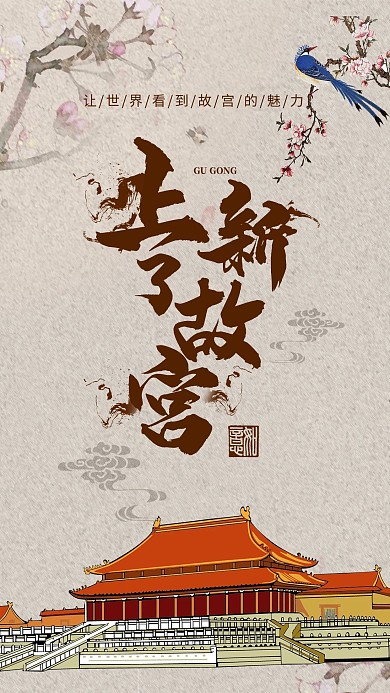 让/世/界/看/到/故/宫/的/魅/力
GU GONG
上新了故宫